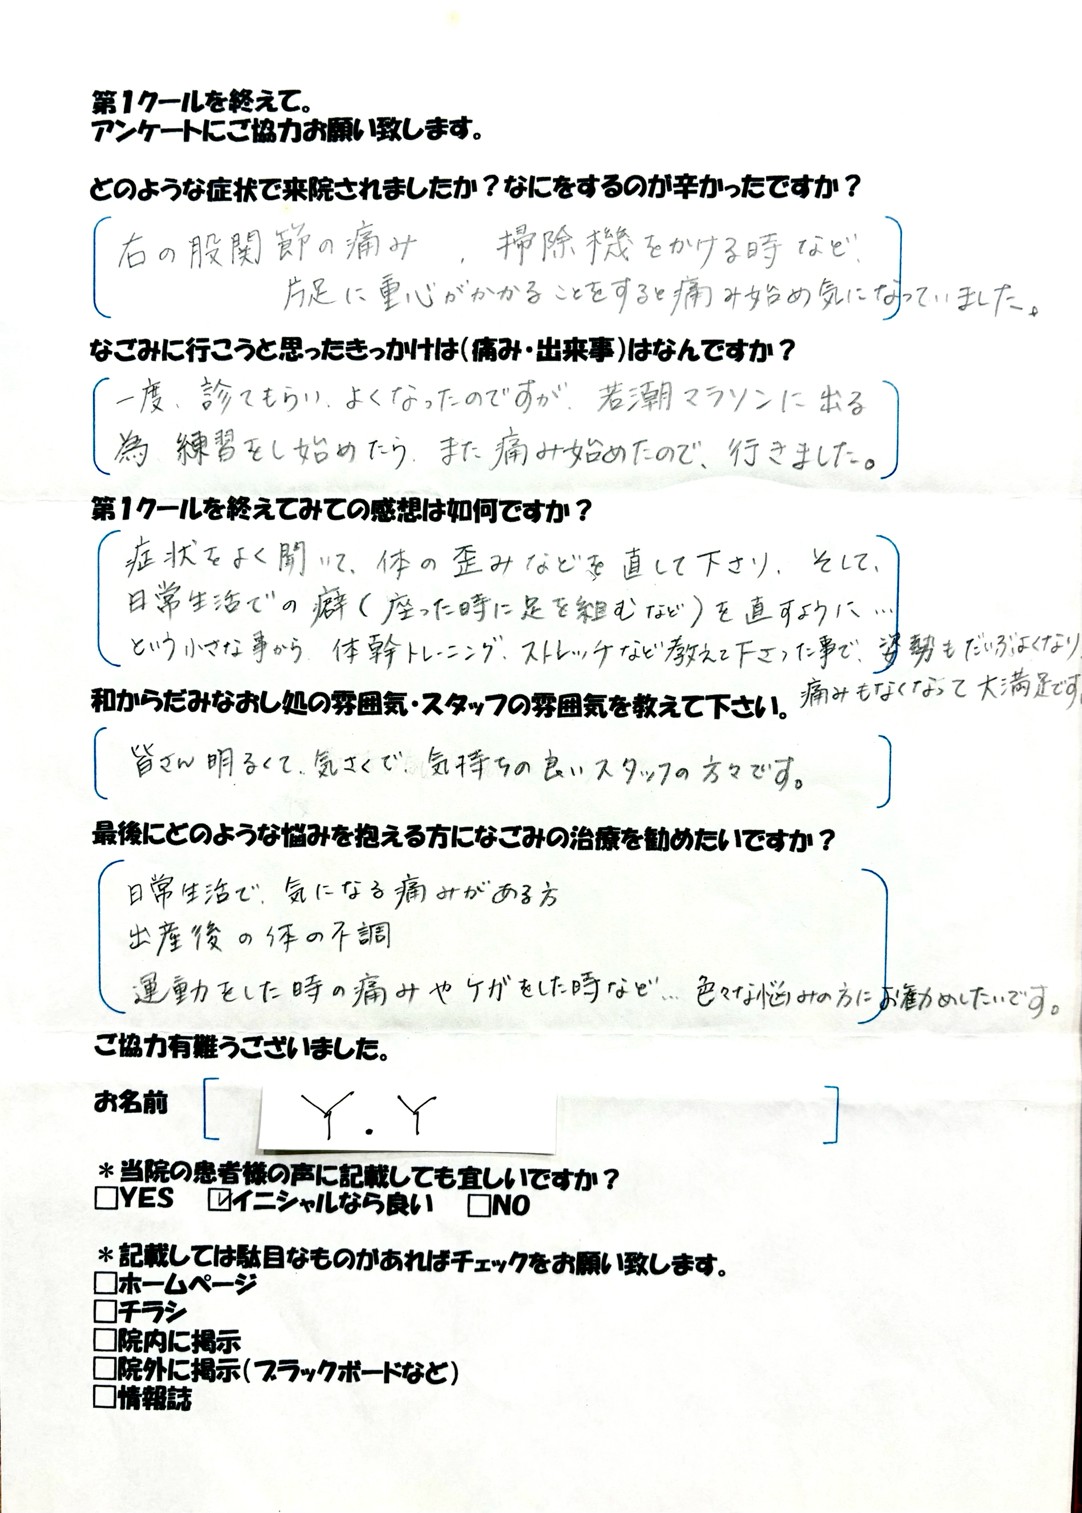 第1クールを終えて。
アンケートにご協力お願い致します。
どのような症状で来院されましたか？なにをするのが辛かったですか？
右の股関節の痛み 、掃除機をかける時など、
片足に重心がかかることをすると痛み始め気になっていました。
なごみに行こうと思ったきっかけは（痛み・出来事）はなんですか？
一度、診てもらい、よくなったのですが、若潮マラソンに出る
為 練習をし始めたら、また痛み始めたので、行きました。
第1クールを終えてみての感想は如何ですか？
症状をよく聞いて、体の歪みなどを直して下さり、そして、
日常生活での癖（座った時に足を組むなど）を直すように…
という小さな事から、体幹トレーニング、ストレッチなど教えて下さった事で、姿勢もだいぶよくなり
痛みもなくなって大満足です
和からだみなおし処の雰囲気・スタッフの雰囲気を教えて下さい。
皆さん明るくて、気さくで、気持ちの良いスタッフの方々です。
最後にどのような悩みを抱える方になごみの治療を勧めたいですか？
日常生活で、気になる痛みがある方
出産後の体の不調
運動をした時の痛みやケガをした時など… 色々な悩みの方にお勧めしたいです。
ご協力有難うございました。
お名前 Y.Y
＊当院の患者様の声に記載しても宜しいですか？
□YES ☑イニシャルなら良い □NO
＊記載しては駄目なものがあればチェックをお願い致します。
□ホームページ
□チラシ
□院内に掲示
□院外に掲示（ブラックボードなど）
□情報誌